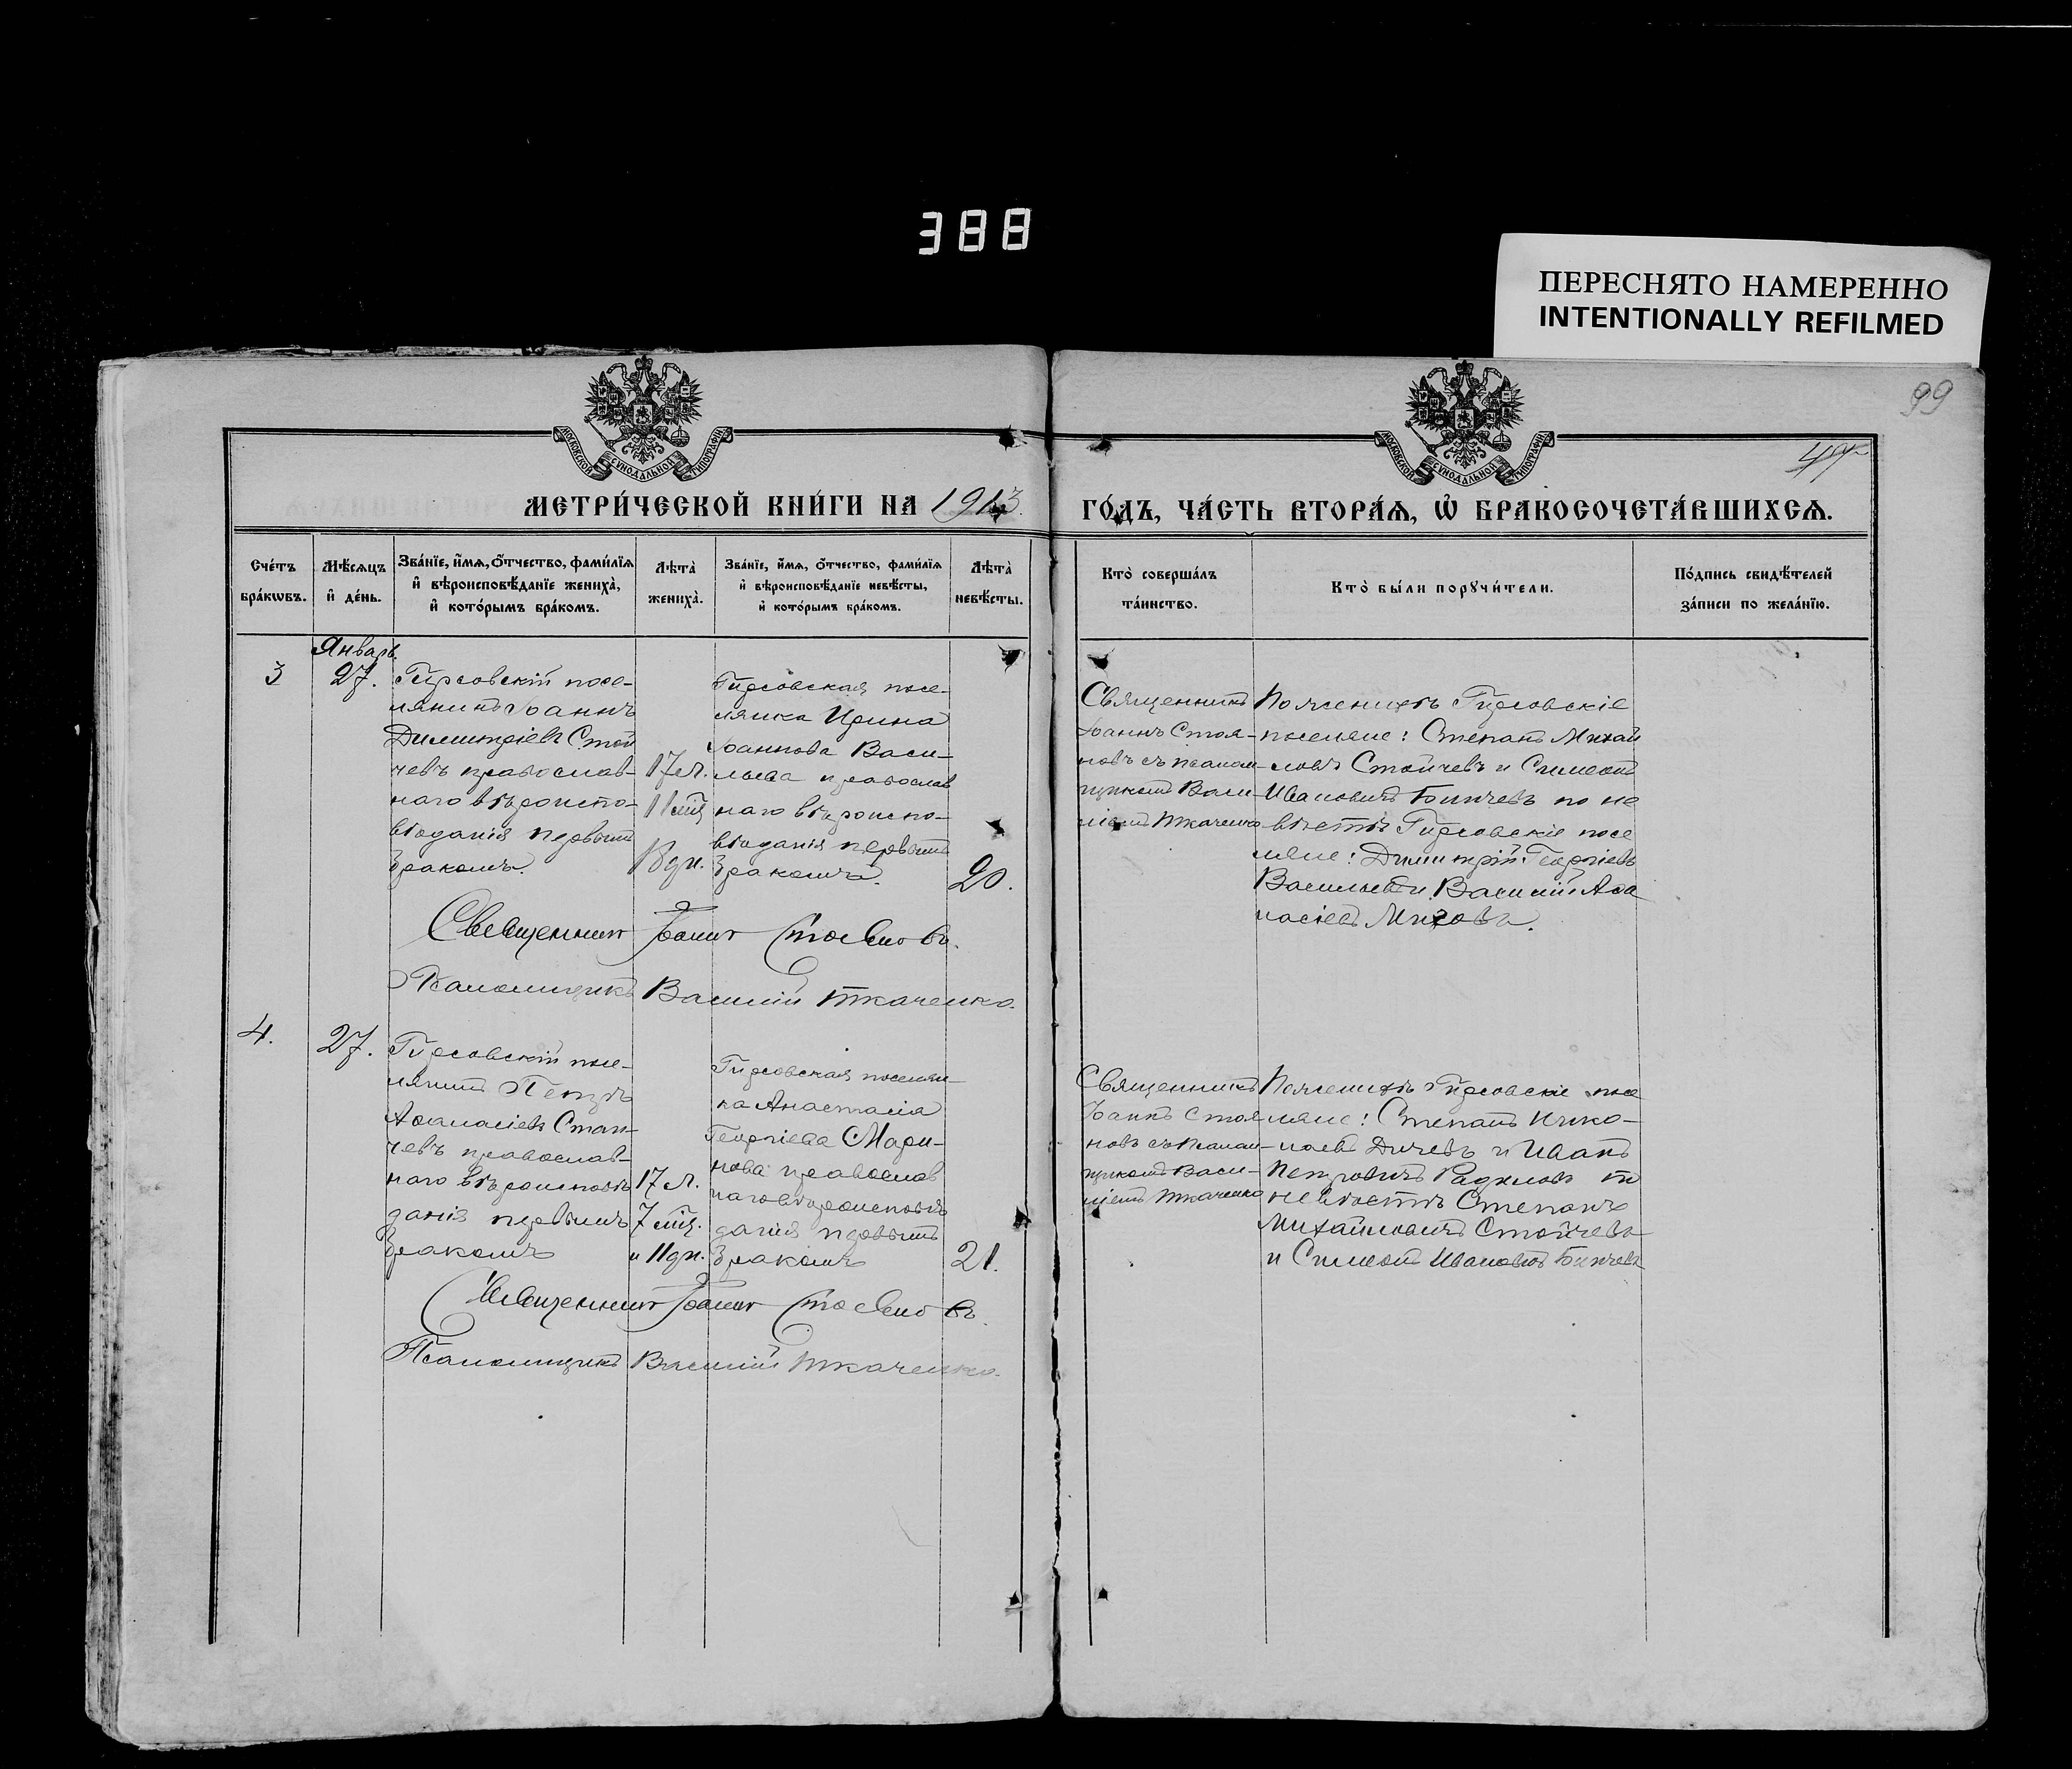 388
ПЕРЕСНЯТО НАМЕРЕННО
INTENTIONALLY REFILMED
99
МОСКОВСКОЙ СУНОДАЛЬНОЙ ТИПОГРАФІИ
МОСКОВСКОЙ СУНОДАЛЬНОЙ ТИПОГРАФІИ
МЕТРИ́ЧЕСКОЙ КНИ́ГИ НА 1913
ГО́ДЪ, ЧА́СТЬ ВТОРА́Ѧ, Ѡ҆ БРАКОСОЧЕТА́ВШИХСѦ.
Сче́тъ
бра́кѡвъ.
Мѣ́сѧцъ
и҆ де́нь.
Зва́нїе, и҆́мѧ, ѻ҆́тчество, фамѝлїѧ
и҆ вѣроисповѣ́данїе жениха̀,
и҆ кото́рымъ бра́комъ.
Лѣта̀
жениха̀.
Зва́нїе, и҆́мѧ, ѻ҆́тчество, фамѝлїѧ
и҆ вѣроисповѣ́данїе невѣ́сты,
и҆ кото́рымъ бра́комъ.
Лѣта̀
невѣ́сты.
Кто̀ соверша́лъ
та́инство.
Кто̀ бы́ли порꙋчи́тели.
По́дпись свидѣ́телей
за́писи по жела́нїю.
Январь.
3
27.
Гирсовскій посе-
лянинъ Іоаннъ
Димитріевъ Стой
чевъ православ-
наго вѣроиспо-
вѣданія первымъ
бракомъ.
17 л.
11 мѣц
18 дн.
Гирсовская посе-
лянка Ирина
Іоаннова Васи-
льева православ
наго вѣроиспо-
вѣданія первымъ
бракомъ.
20.
Священникъ
Іоаннъ Стоя-
новъ съ псалом-
щикомъ Васи-
ліемъ Ткаченко
По женихѣ Гирсовскіе
поселяне: Степанъ Михай
ловъ Стойчевъ и Симеонъ
Ивановичъ Бинчевъ по не
вѣстѣ Гирсовскіе посе
ляне: Димитрій Георгіевъ
Васильевъ и Василій Аѳа
насіевъ Мисовъ.
Священникъ Іоаннъ Стояновъ.
Псаломщикъ Василій Ткаченко.
4.
27.
Гирсовскій посе-
лянинъ Петръ
Аѳанасіевъ Стан-
чевъ православ-
наго вѣроисповѣ
данія первымъ
бракомъ
17 л.
7 мѣц.
и 11 дн.
Гирсовская поселян-
ка Анастасія
Георгіева Мари-
нова православ
наго вѣроисповѣ
данія первымъ
бракомъ
21.
Священникъ
Іоаннъ Стоя
новъ съ псалом-
щикомъ Васи-
ліемъ Ткаченко
По женихѣ Гирсовскіе посе
ляне: Степанъ Нико-
лаевъ Дичевъ и Иванъ
Петровичъ Радиловъ по
невѣстѣ Степанъ
Михайловичъ Стойчевъ
и Симеонъ Ивановичъ Бинчевъ
Священникъ Іоаннъ Стояновъ.
Псаломщикъ Василій Ткаченко.